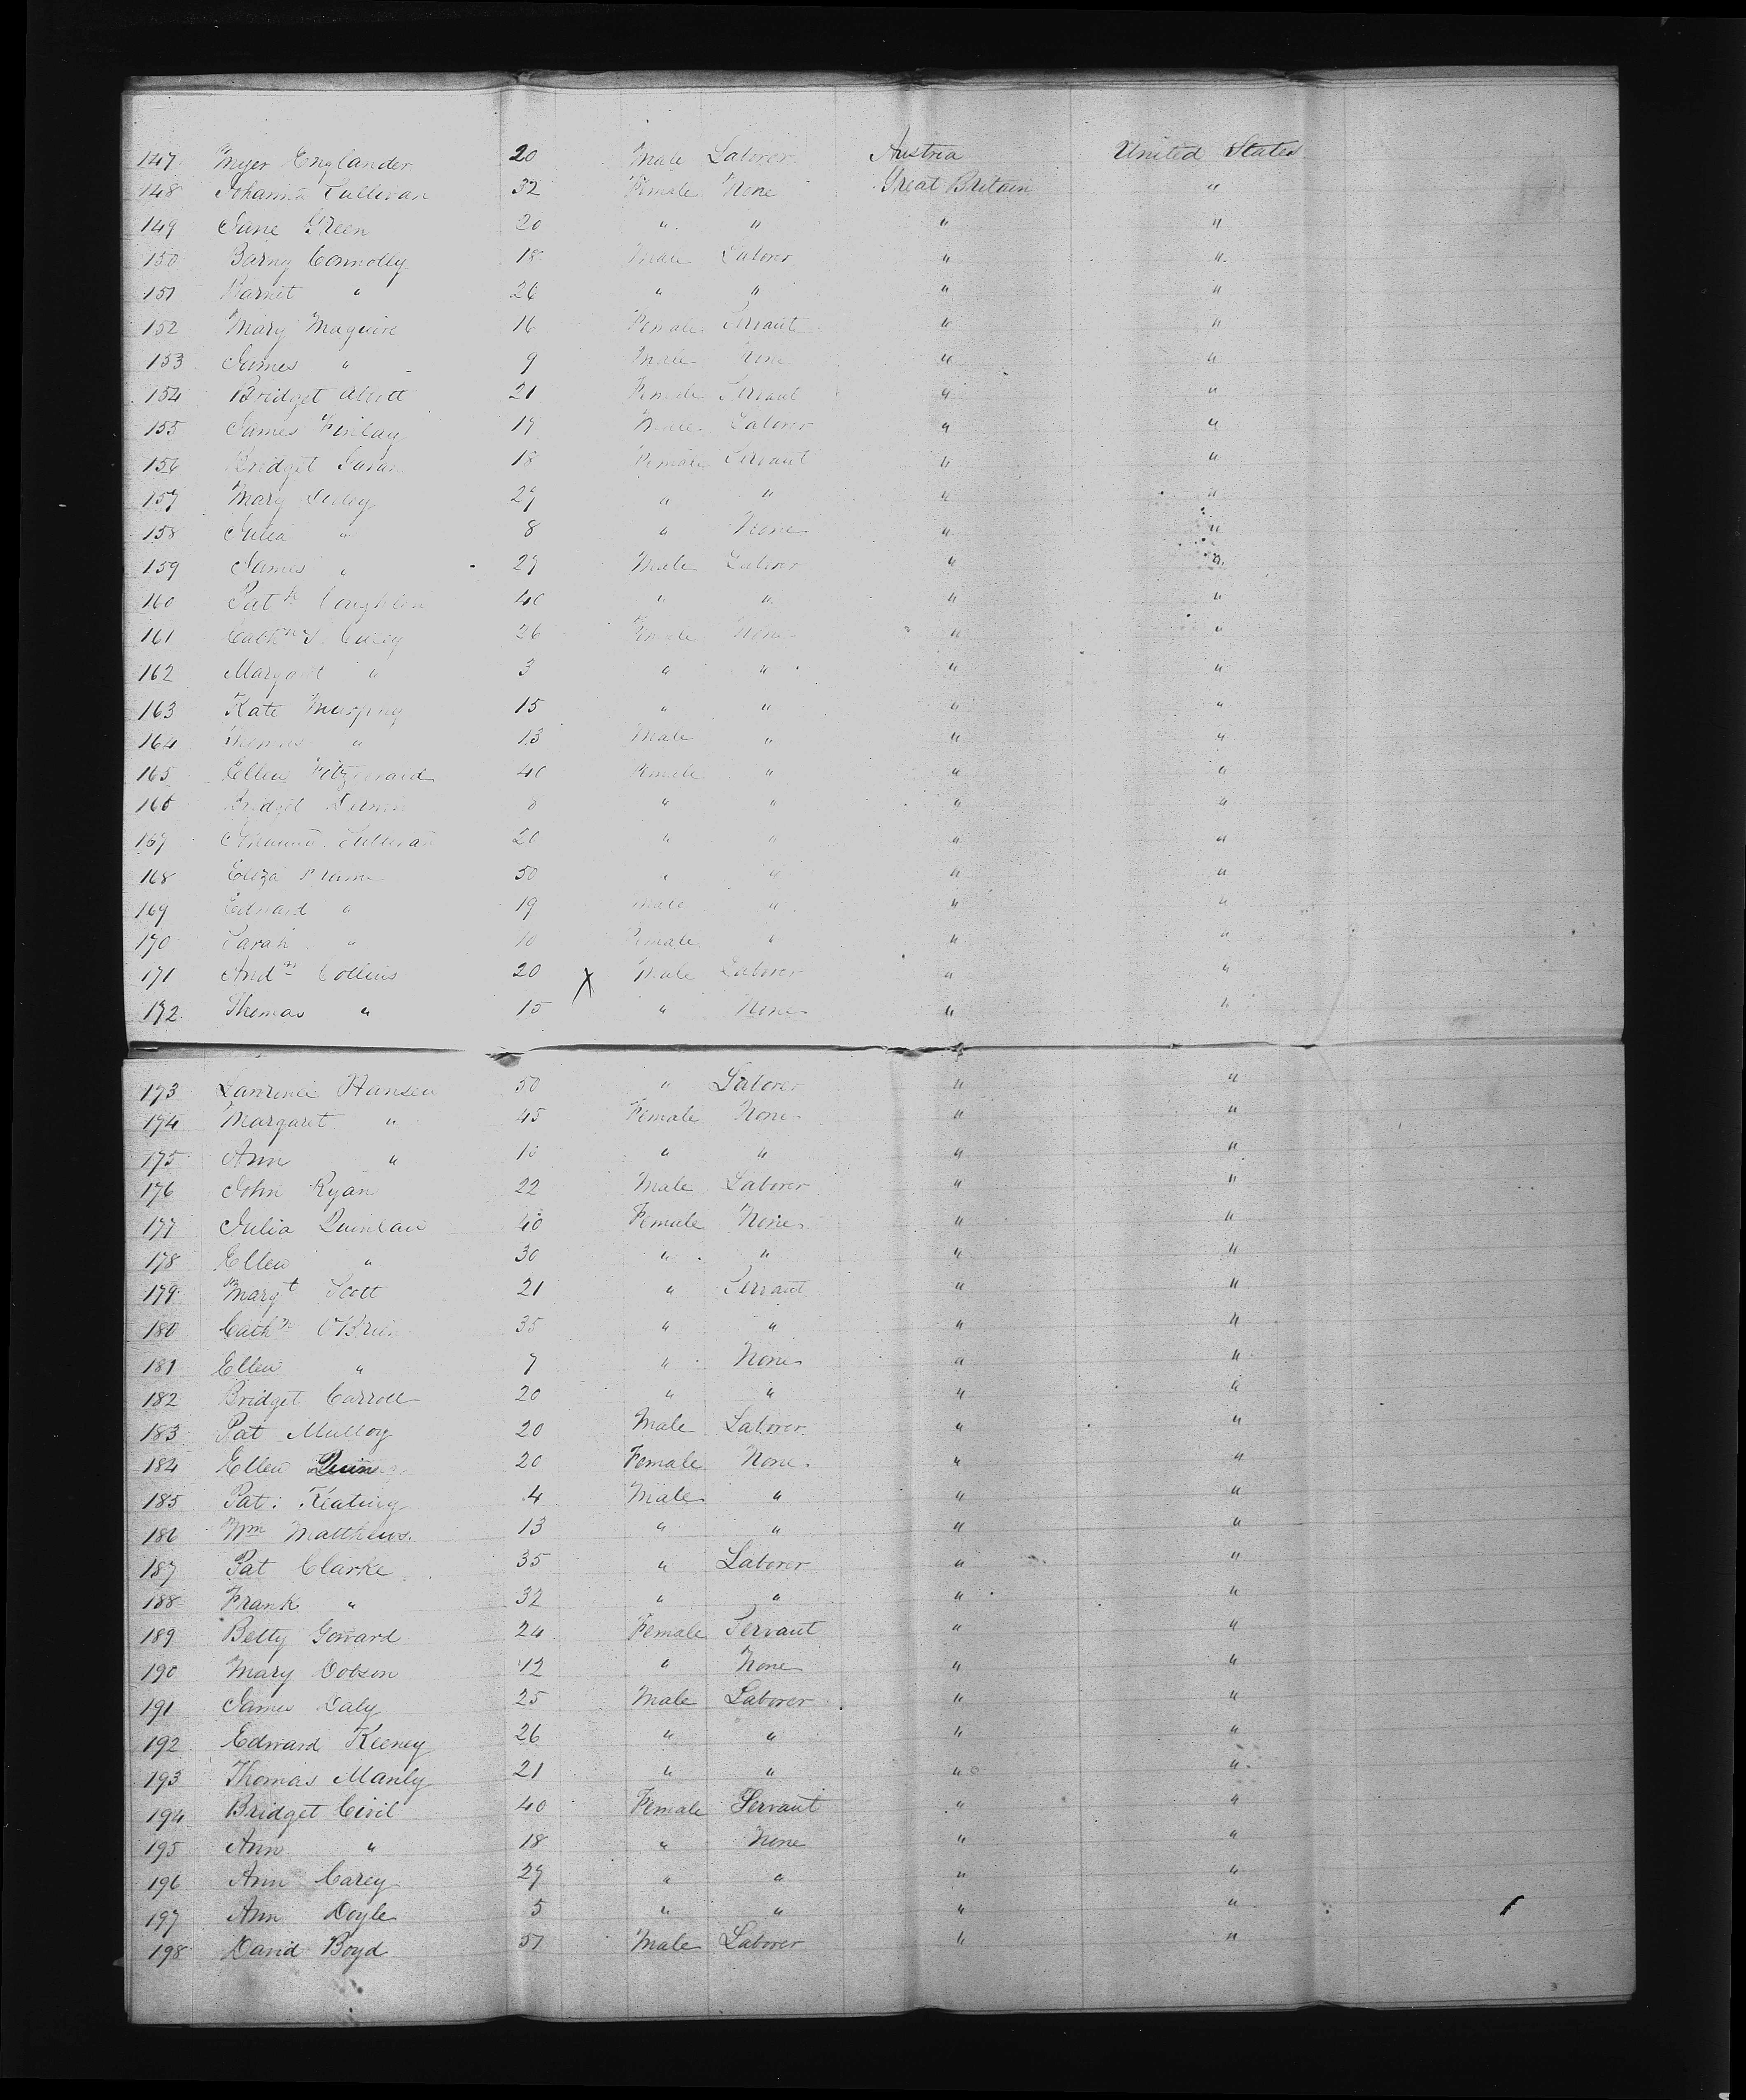 147 Myer Englander 20 Male Laborer Austria United States
148 Johanna Sullivan 32 Female None Great Britain "
149 Jane Green 20 " " " "
150 Barny Connolly 18 Male Laborer " "
151 Barnet " 26 " " " "
152 Mary Maguire 16 Female Servant " "
153 James " 9 Male None " "
154 Bridget 21 Female Servant " "
155 James Finlay 19 Male Laborer " "
156 Bridget 18 Female Servant " "
157 Mary 29 " " " "
158 Julia " 8 " None " "
159 James " 29 Male Laborer " "
160 Patk Coughlin 40 " " " "
161 Cathne Carey 26 Female None " "
162 Margaret " 3 " " " "
163 Kate Murphy 15 " " " "
164 Thomas " 13 Male " " "
165 Ellen Fitzgerald 40 Female " " "
166 Bridget 8 " " " "
167 Johanna Sullivan 20 " " " "
168 Eliza 50 " " " "
169 Edward " 19 Male " " "
170 Sarah " 10 Female " " "
171 Andw Collins 20 X Male Laborer " "
172 Thomas " 15 " None " "
173 Lawrence Hansen 50 " Laborer " "
174 Margaret " 45 Female None " "
175 Ann " 10 " " " "
176 John Ryan 22 Male Laborer " "
177 Julia Quinlan 40 Female None " "
178 Ellen " 30 " " " "
179 Margt Scott 21 " Servant " "
180 Cathne O'Brien 35 " " " "
181 Ellen " 7 " None " "
182 Bridget Carroll 20 " " " "
183 Pat Mulloy 20 Male Laborer " "
184 Ellen Quin 20 Female None " "
185 Pat: Keating 4 Male " " "
186 Wm Matthews 13 " " " "
187 Pat Clarke 35 " Laborer " "
188 Frank " 32 " " " "
189 Betty Goward 24 Female Servant " "
190 Mary Dobson 12 " None " "
191 James Daly 25 Male Laborer " "
192 Edward Keeney 26 " " " "
193 Thomas Manly 21 " " " "
194 Bridget Civil 40 Female Servant " "
195 Ann " 18 " None " "
196 Ann Carey 29 " " " "
197 Ann Doyle 5 " " " "
198 David Boyd 51 Male Laborer " "